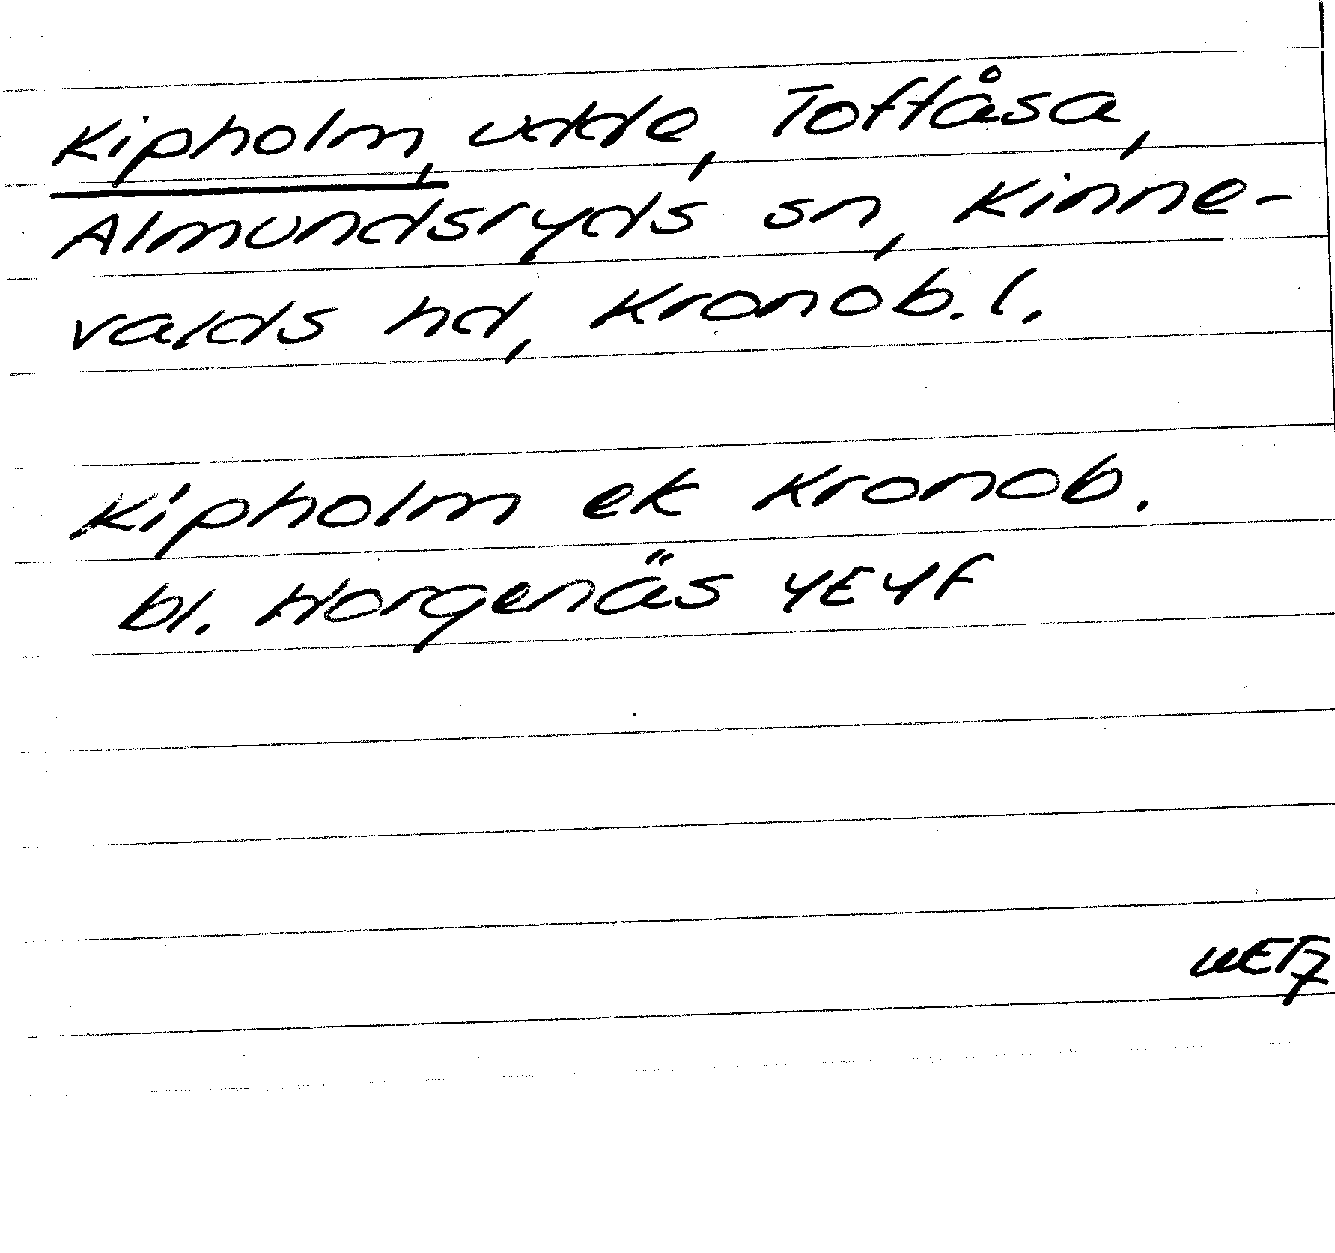 Kipholm, udde, Toftåsa,
Almundsryds sn, Kinne-
valds hd, Kronob. l.
Kipholm ek Kronob.
bl. Horgenäs 4E4f